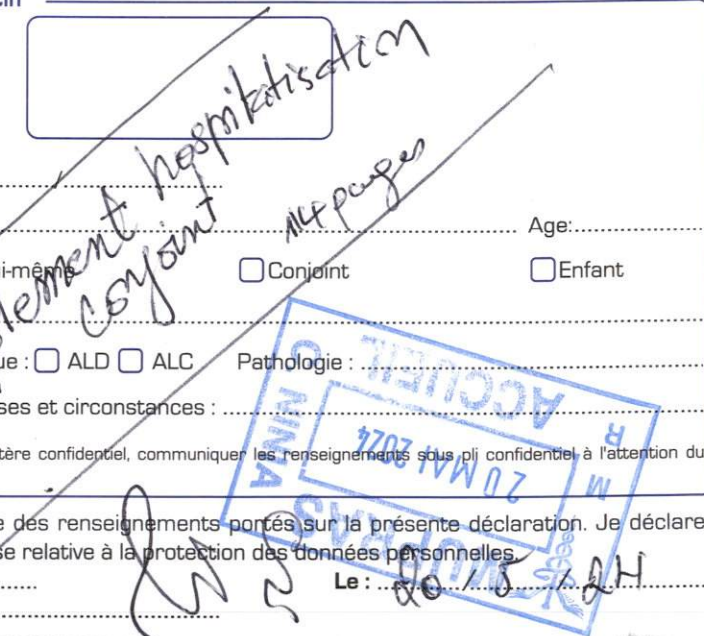 hospitalisation
conjoint
pages
Age:
i-même Conjoint Enfant
ue : ALD ALC Pathologie :
ses et circonstances :
tère confidentiel, communiquer les renseignements sous pli confidentiel à l'attention du
e des renseignements portés sur la présente déclaration. Je déclare
se relative à la protection des données personnelles.
Le : 20 / 5 / 24
ACCUEIL
20 MAI 2024
MUPRAS